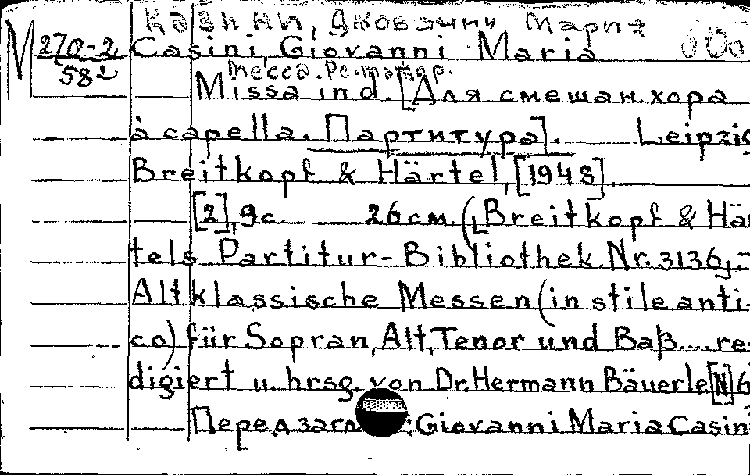 Казини, Джованни Мария
М 270-2 Casini, Giovanni Maria
582 Месса. Ре-мажор.
Missa in d. [Для смешан. хора
à capella. Партитура]. Leipzig
Breitkopf & Härtel, [1948].
[2], 9 с. 26 см. (Breitkopf & Här
tels Partitur-Bibliothek Nr. 3136,-
Altklassische Messen (in stile anti-
co) für Sopran, Alt, Tenor und Baß.... re-
digiert u. hrsg. von Dr. Hermann Bäuerle [N] 6
Перед загл : Giovanni Maria Casin